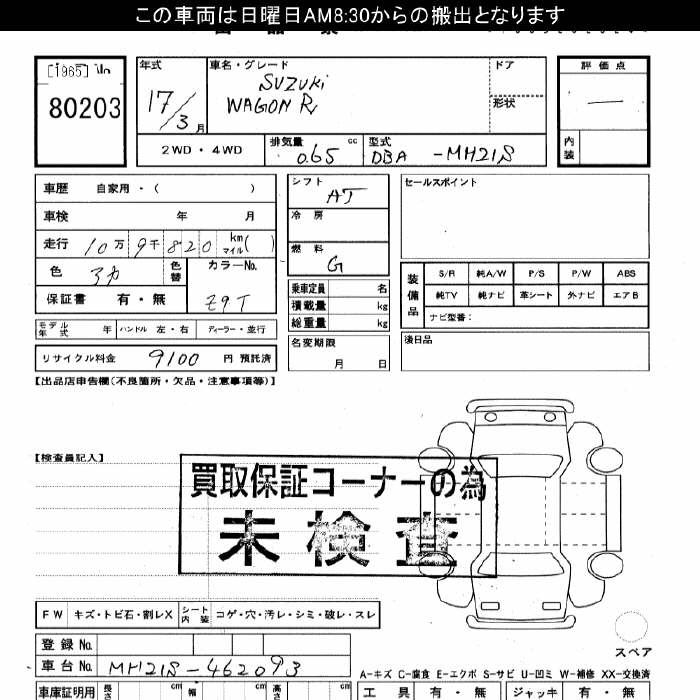 この車両は日曜日AM8:30からの搬出となります
[1965]
80203
年式
17/3月
車名・グレード
SUZUKI
WAGON R
ドア
形状
評価点
内装
2WD・4WD
排気量 0.65 cc
型式 DBA -MH21S
車歴 自家用・( )
車検 年 月
走行 10万9千820 km マイル( )
色
色替
カラーNo.
Z9T
保証書 有・無
シフト AT
冷房
燃料 G
乗車定員 名
積載量 kg
総重量 kg
セールスポイント
装備品
S/R 純A/W P/S P/W ABS
純TV 純ナビ 革シート 外ナビ エアB
ナビ型番:
モデル年式 年 ハンドル 左・右 ディーラー・並行
リサイクル料金 9100 円 預託済
名変期限
月 日
後日品
【出品店申告欄(不良箇所・欠品・注意事項等)】
【検査員記入】
買取保証コーナーの為
未検査
FW キズ・トビ石・割レX シート内装 コゲ・穴・汚レ・シミ・破レ・スレ
登録No.
車台No. MH21S-462093
スペア
A-キズ C-腐食 E-エクボ S-サビ U-凹ミ W-補修 XX-交換済
車庫証明用 長さ cm 幅 cm 高さ cm
工具 有・無 ジャッキ 有・無